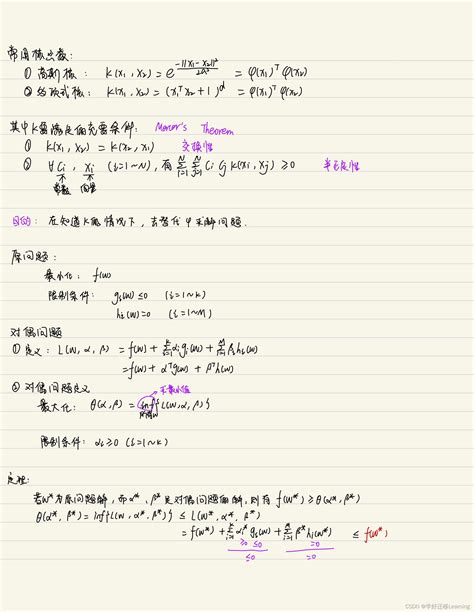 常用核函数:
① 高斯核: K(x₁, x₂) = e^(-||x₁-x₂||²/2σ²) = φ(x₁)ᵀφ(x₂)
② 多项式核: K(x₁, x₂) = (x₁ᵀx₂+1)^d = φ(x₁)ᵀφ(x₂)
其中K需满足的充要条件: Mercer's Theorem
① K(x₁, x₂) = K(x₂, x₁) 交换性
② ∀Ci, xi (i=1~N), 有 Σ_{i=1}^N Σ_{j=1}^N Ci Cj K(xi, xj) ≥ 0 半正定性
常数 向量
目的: 在知道K的情况下, 去替代φ求解问题.
原问题:
最小化: f(w)
限制条件: gi(w) ≤ 0 (i=1~K)
hi(w) = 0 (i=1~M)
对偶问题
① 定义: L(w, α, β) = f(w) + Σ_{i=1}^K αi gi(w) + Σ_{i=1}^M βi hi(w)
= f(w) + αᵀg(w) + βᵀh(w)
② 对偶问题定义
求最小值
最大化: θ(α, β) = inf{L(w, α, β)}
所有w
限制条件: αi ≥ 0 (i=1~K)
定理:
若w*为原问题解, 而α*, β*是对偶问题的解, 则有 f(w*) ≥ θ(α*, β*)
θ(α*, β*) = inf{L(w, α*, β*)} ≤ L(w*, α*, β*)
= f(w*) + Σ_{i=1}^K αi* gi(w*) + Σ_{i=1}^M βi* hi(w*) ≤ f(w*)
≥0 ≤0 =0
≤0 =0
CSDN @学好迁移Learning